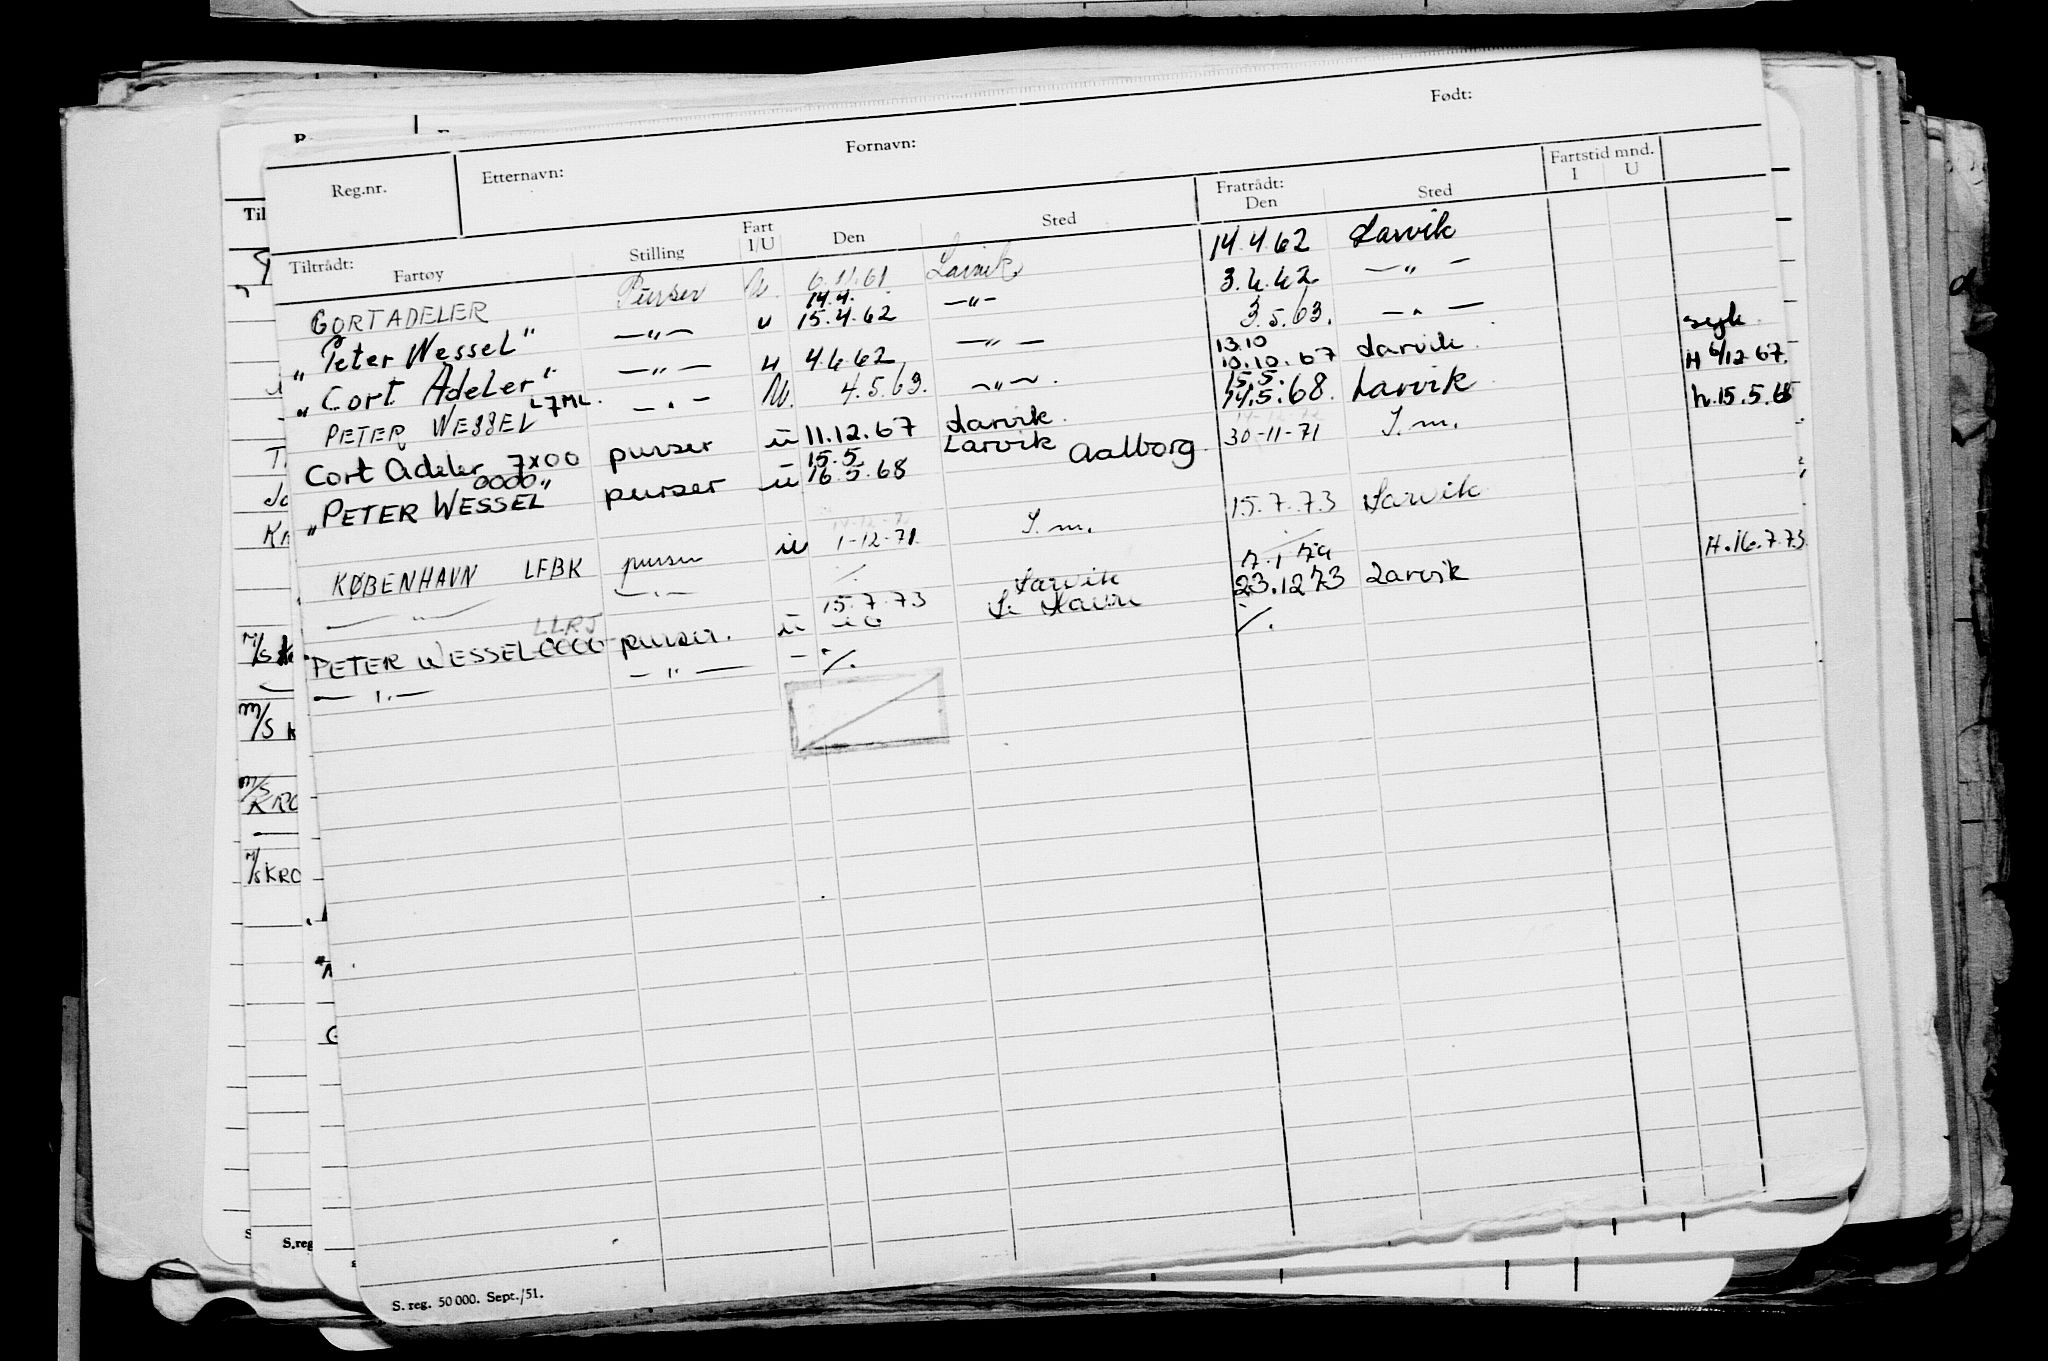 Reg.nr. Etternavn: Fornavn: Født:
Tiltrådt: Fartøy Stilling Fart I/U Den Sted Fratrådt: Den Sted Fartstid mnd. I U
CORT ADELER Purser U. 6.11.61 Larvik 14.4.62 Larvik
14.4.
"Peter Wessel" —"— u 15.4.62 —"— 3.6.62 —"—
"Cort Adeler" —"— u 4.6.62 —"— 3.5.63. —"—
13.10 syk
PETER WESSEL L7ML. —"— U. 4.5.63. —"—. 10.10.67 Larvik. H 6/12 67.
15.5.
Cort Adeler 7X00 purser u 11.12.67 Larvik. 14.5.68. Larvik h.15.5.68
0000 15.5 Larvik
"PETER WESSEL" purser u 16.5.68 Aalborg 30-11-71 I.m.
KØBENHAVN LFBK purser u 1-12-71 I.m. 15.7.73 Larvik
—"— —"— ./.
LLRJ 15.7.73 Larvik 7.1 74
PETER WESSEL 0000 purser. u Le Havre 23.12.73 Larvik H.16.7.73
—"— —"— - ./. ./.
M/S
M/S K
M/S KRO
M/S KRO
S.reg
S. reg. 50 000. Sept./51.